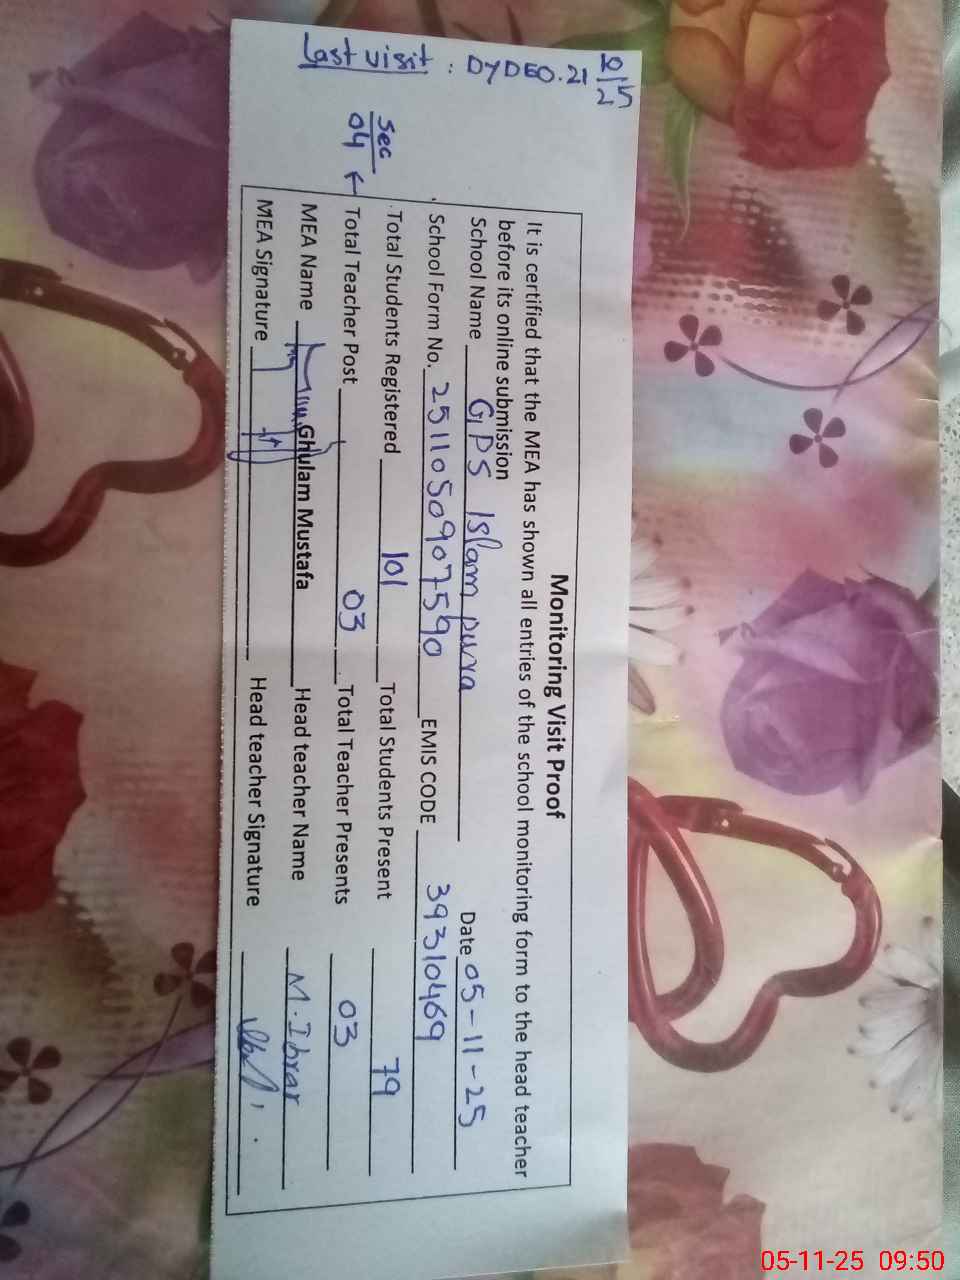 Last visit : DYDEO. 21
10/25
Sec
04 ←
Monitoring Visit Proof
It is certified that the MEA has shown all entries of the school monitoring form to the head teacher
before its online submission
School Name GPS Islam pura Date 05-11-25
School Form No. 2511050907590 EMIS CODE 39310469
Total Students Registered 101 Total Students Present 79
Total Teacher Post 03 Total Teacher Presents 03
MEA Name Ghulam Mustafa Head teacher Name M. Ibrar
MEA Signature Head teacher Signature
05-11-25 09:50